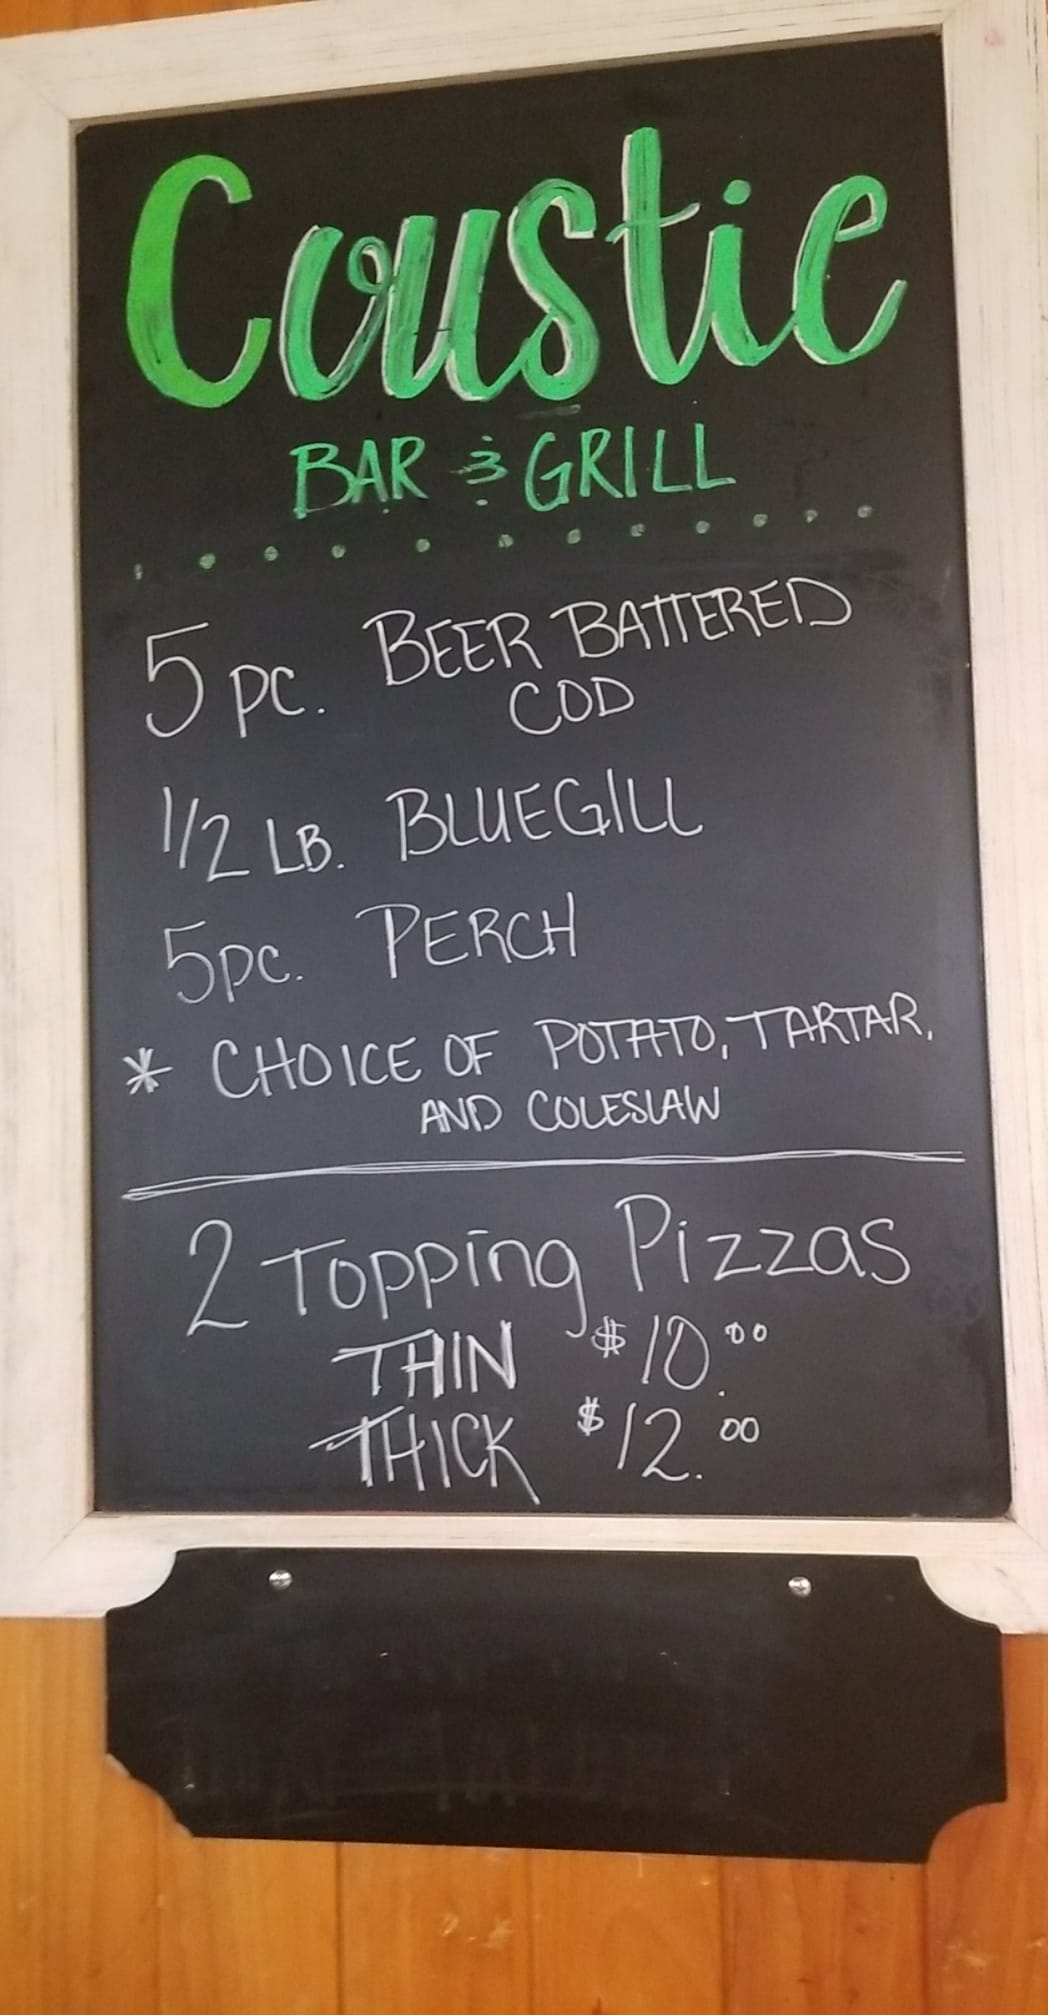 Coustic
BAR & GRILL
5 PC. BEER BATTERED
COD
1/2 LB. BLUEGILL
5PC. PERCH
* CHOICE OF POTATO, TARTAR,
AND COLESLAW
2 Topping Pizzas
THIN $10.00
THICK $12.00